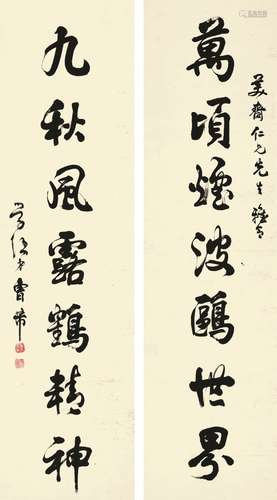 美齋仁兄先生雅令
萬頃煙波鷗世界
九秋風露鶴精神
曾熙